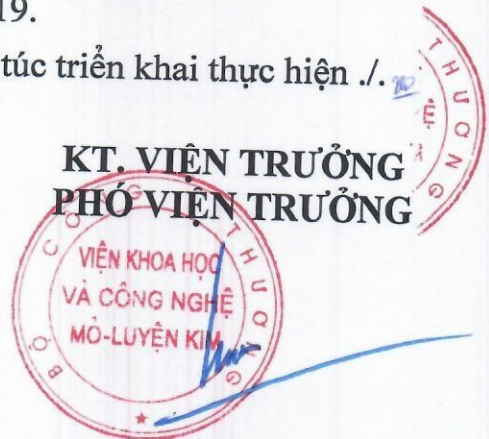 19.
túc triển khai thực hiện ./.
KT. VIỆN TRƯỞNG
PHÓ VIỆN TRƯỞNG
BỘ CÔNG THƯƠNG
VIỆN KHOA HỌC
VÀ CÔNG NGHỆ
MỎ-LUYỆN KIM
THƯƠNG